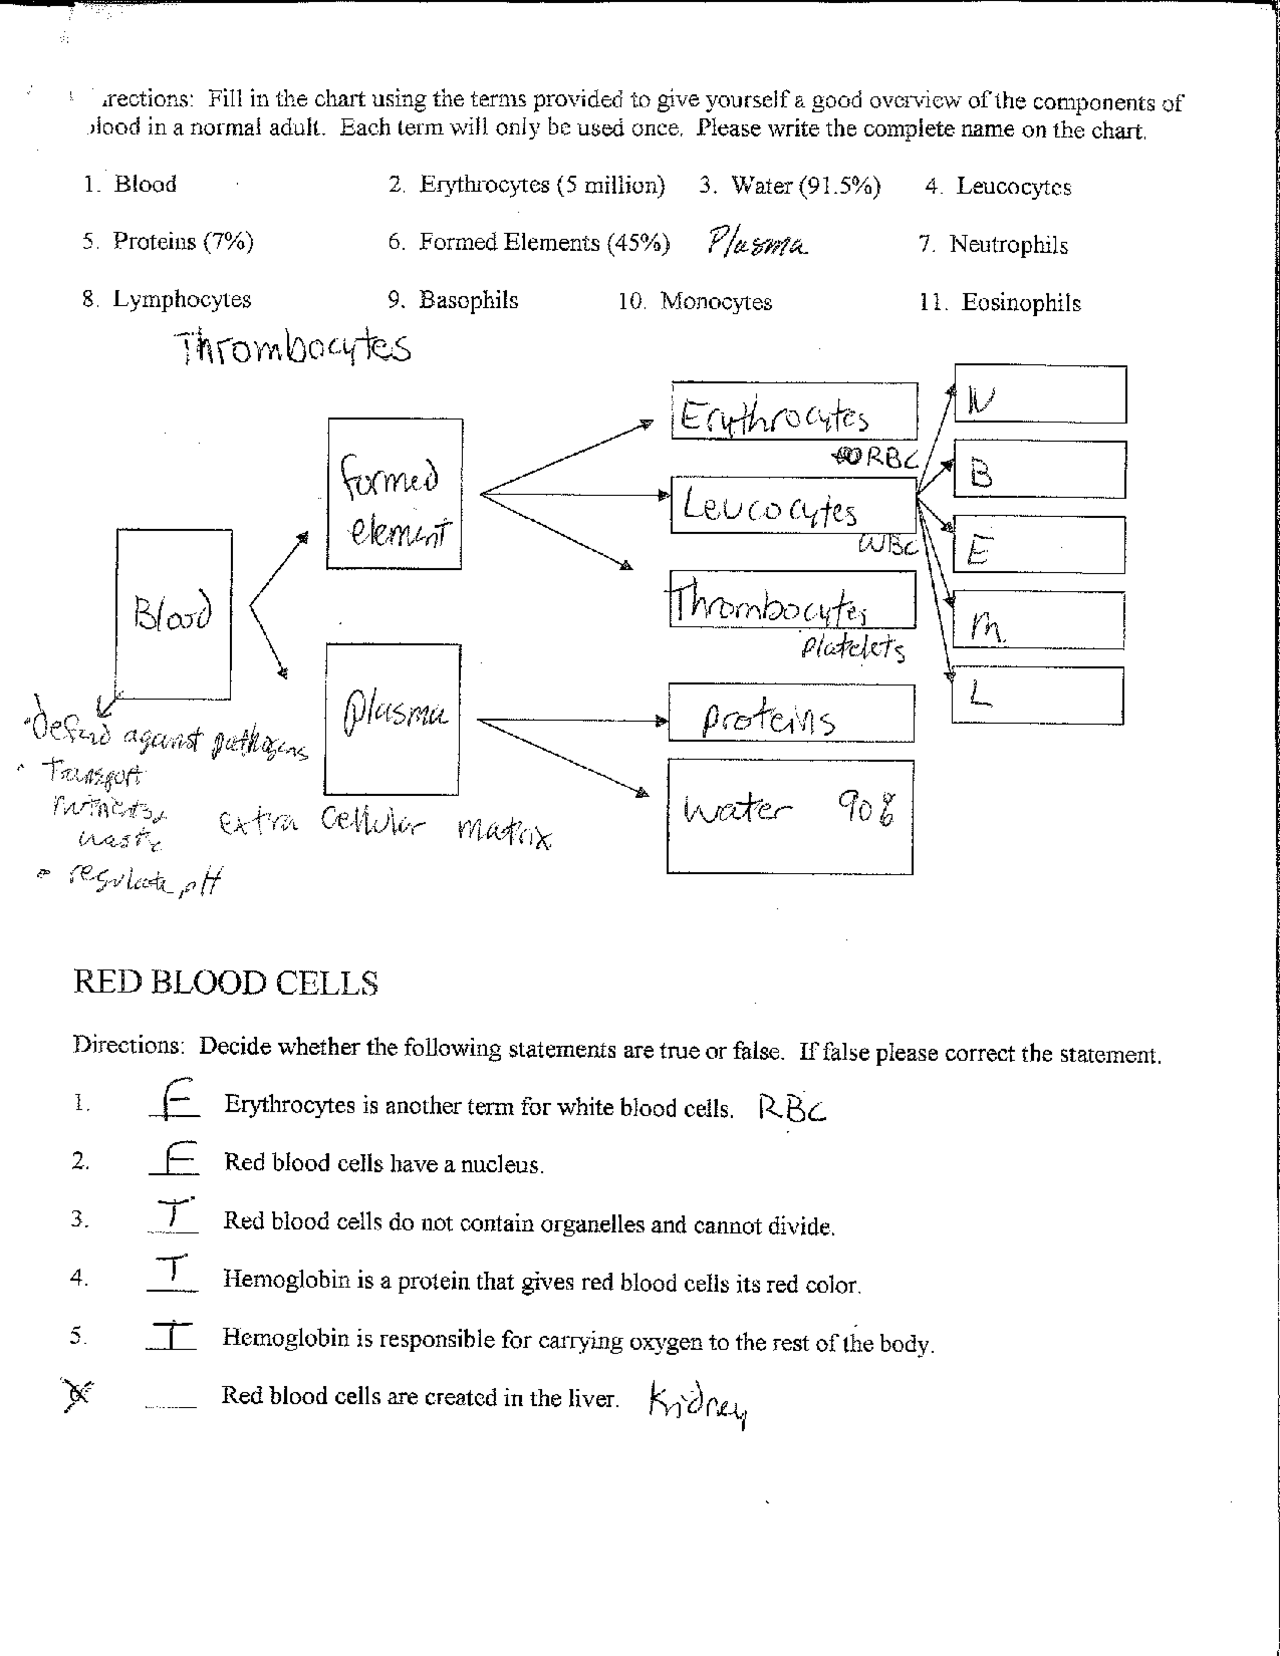 rections: Fill in the chart using the terms provided to give yourself a good overview of the components of
lood in a normal adult. Each term will only be used once. Please write the complete name on the chart.
1. Blood 2. Erythrocytes (5 million) 3. Water (91.5%) 4. Leucocytes
5. Proteins (7%) 6. Formed Elements (45%) Plasma 7. Neutrophils
8. Lymphocytes 9. Basophils 10. Monocytes 11. Eosinophils
Thrombocytes
Erythrocytes
RBC
Leucocytes
WBC
Thrombocytes
Platelets
N
B
E
M
L
formed
element
Blood
plasma
proteins
water 90%
·Defend against pathogens
· Transport
nutrients,
waste
· regulate pH
extra cellular matrix
RED BLOOD CELLS
Directions: Decide whether the following statements are true or false. If false please correct the statement.
1. F Erythrocytes is another term for white blood cells. RBC
2. F Red blood cells have a nucleus.
3. T Red blood cells do not contain organelles and cannot divide.
4. T Hemoglobin is a protein that gives red blood cells its red color.
5. T Hemoglobin is responsible for carrying oxygen to the rest of the body.
6. Red blood cells are created in the liver. Kidney